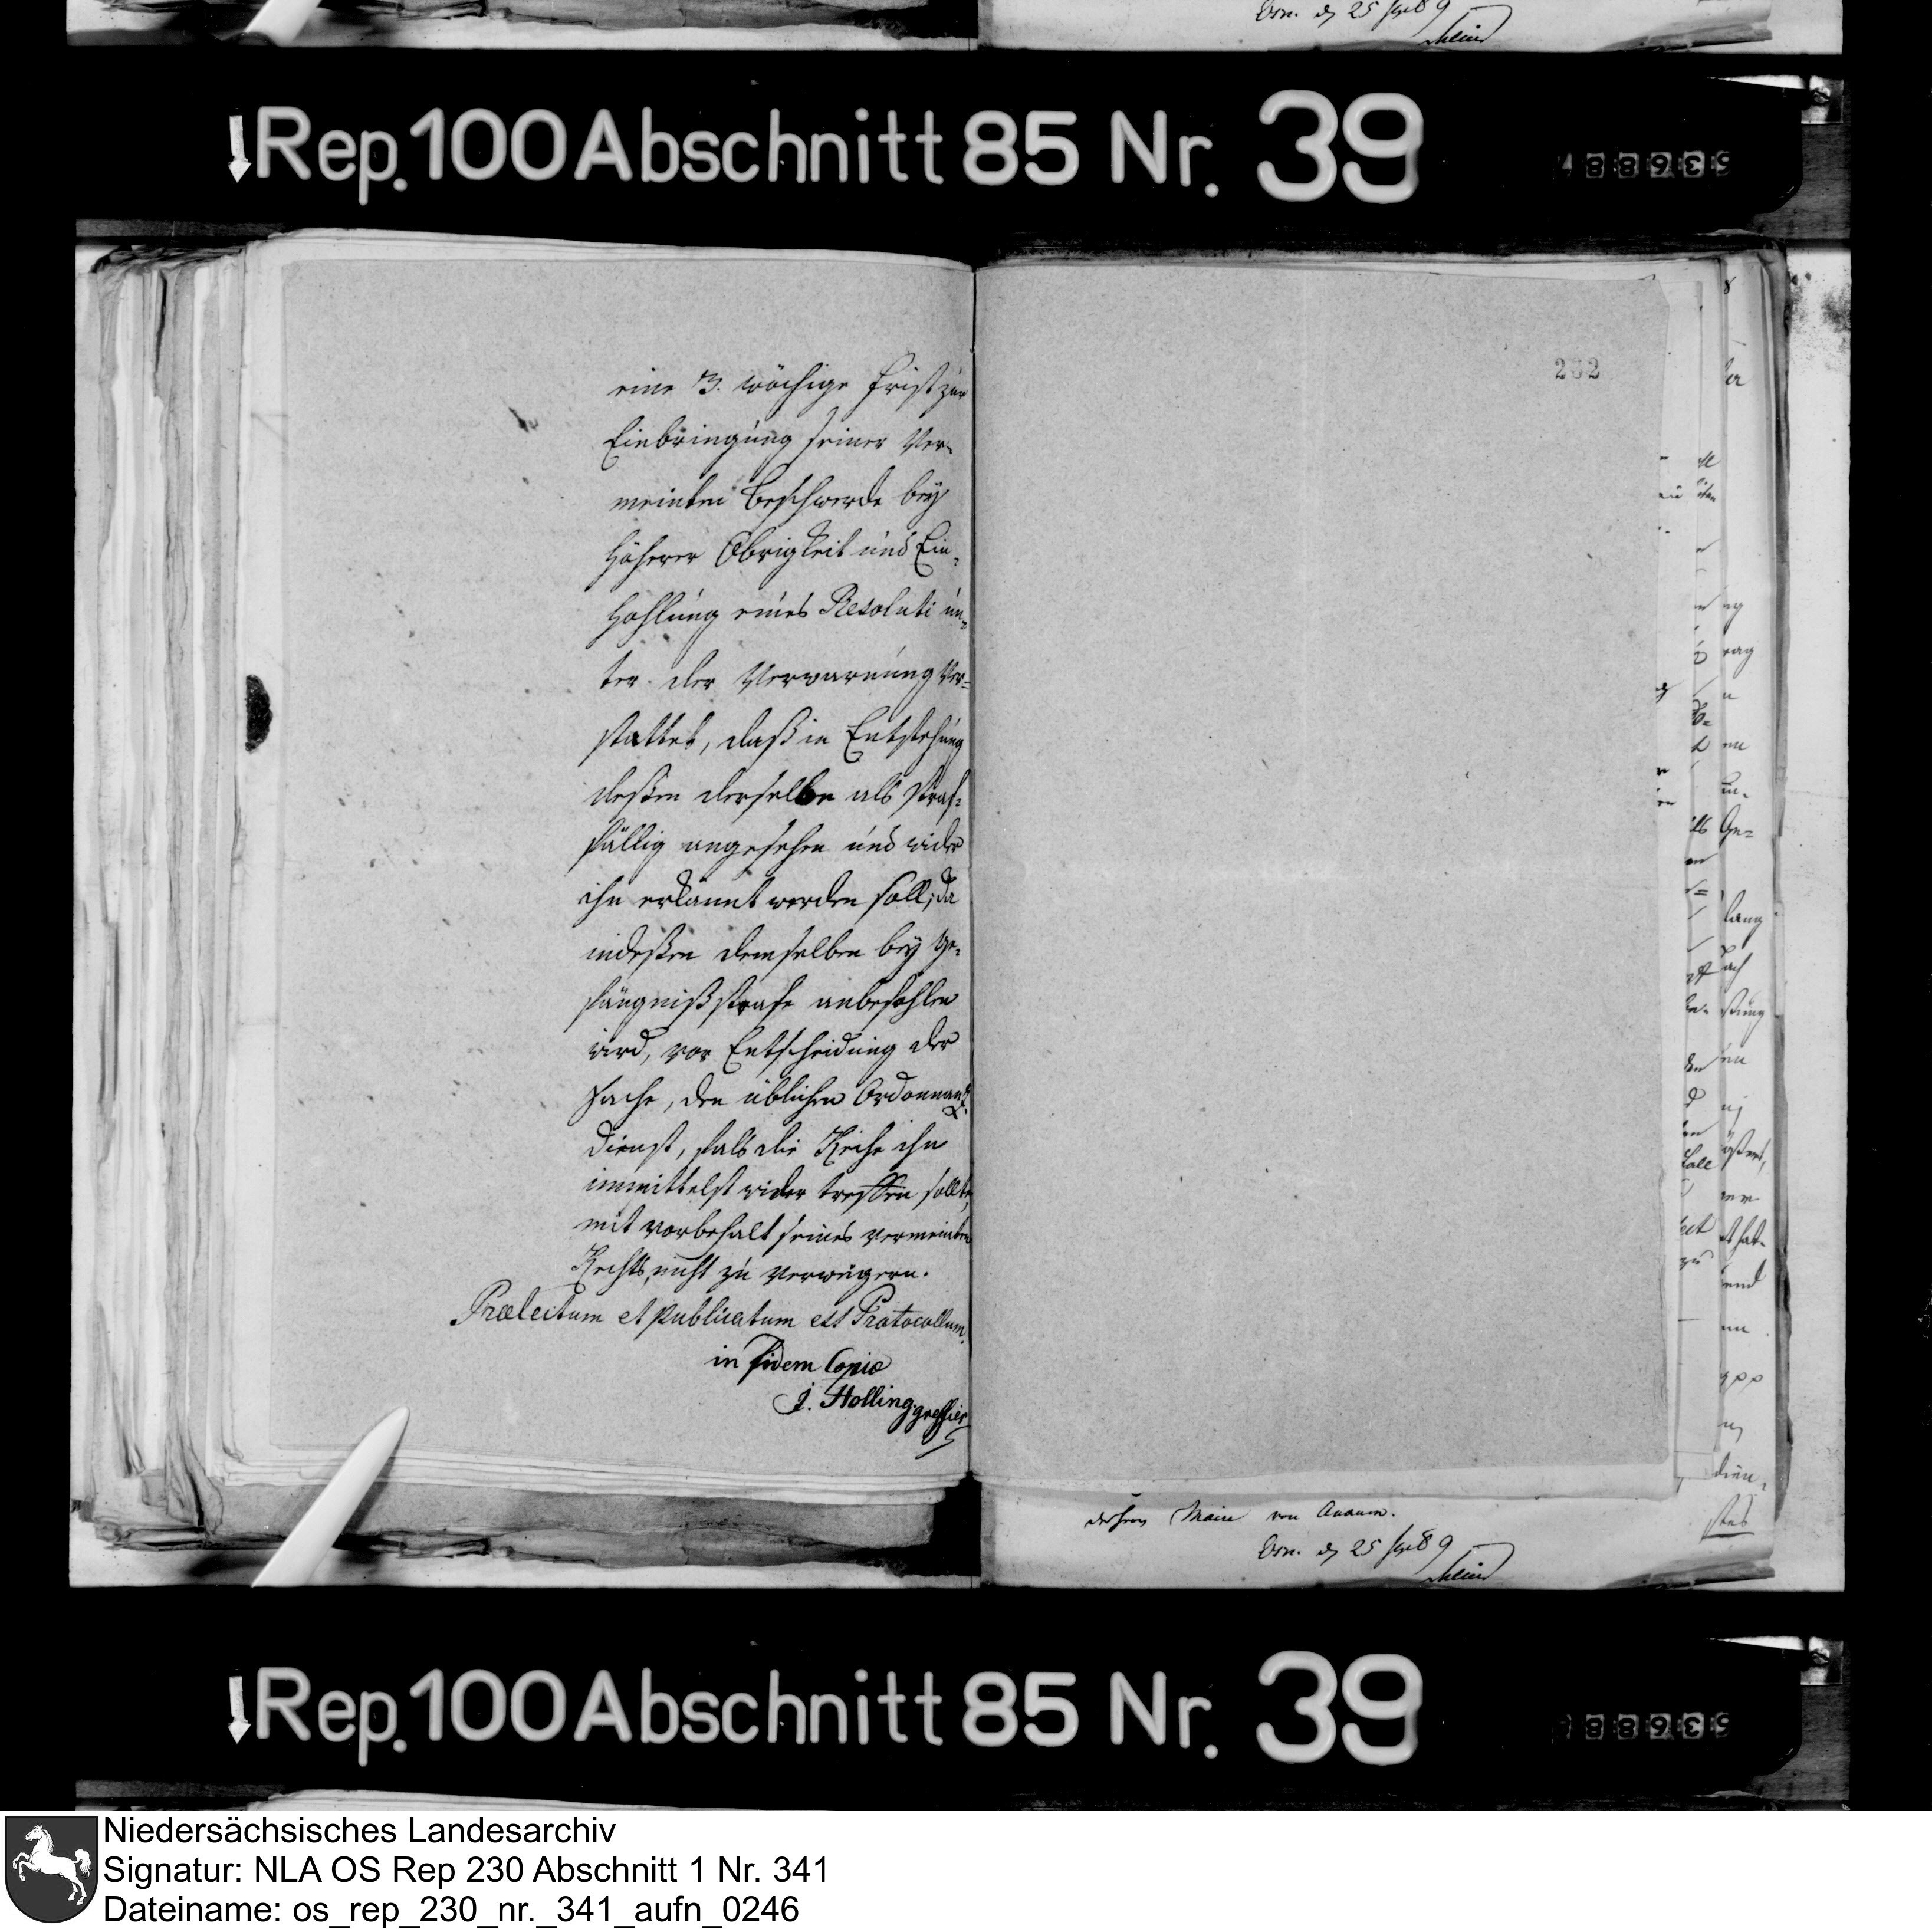 Osn. d 25 Spt 89
Rep. 100 Abschnitt 85 Nr. 39
eine 3. wöchige Frist zur
Einbringung seiner Ver-
meinten Beschwerde bey
Höherer Obrigkeit und Ein-
hohlung eines Resoluti un-
ter der Verwarnung Ver-
stattet, daß in Entstehung
deßen derselbe als straf-
fällig angesehen und wider
ihn erkannt werden soll; da
indeßen demselben bey Ge-
fängnißstrafe anbefohlen
wird, vor Entscheidung der
Sache, den üblichen Ordonnanz
dienst, falls die Reihe ihn
immittelst wider treffen sollte,
mit vorbehalt seines vermeinten
Rechts, nicht zu verweigern.
Prælectum et publicatum est Protocollum.
in fidem Copiæ
J. Holling. greffier
202
Maire von Ankum.
Osn. d 25 Spt 89
Rep. 100 Abschnitt 85 Nr. 39
Niedersächsisches Landesarchiv
Signatur: NLA OS Rep 230 Abschnitt 1 Nr. 341
Dateiname: os_rep_230_nr._341_aufn_0246